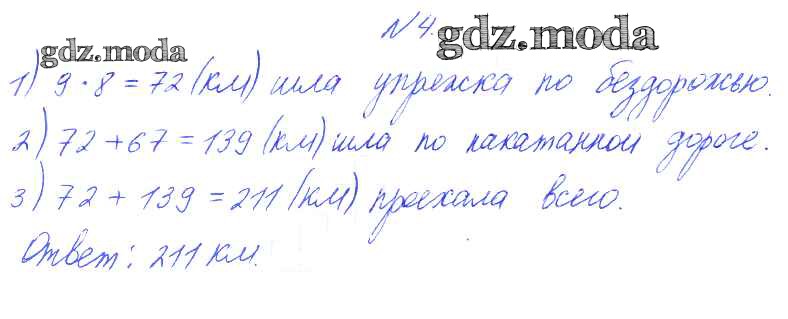 №4.
gdz.moda
gdz.moda
1) 9·8=72 (км) шла упряжка по бездорожью.
2) 72+67=139 (км) шла по накатанной дороге.
3) 72+139=211 (км) проехала всего.
Ответ: 211 км.